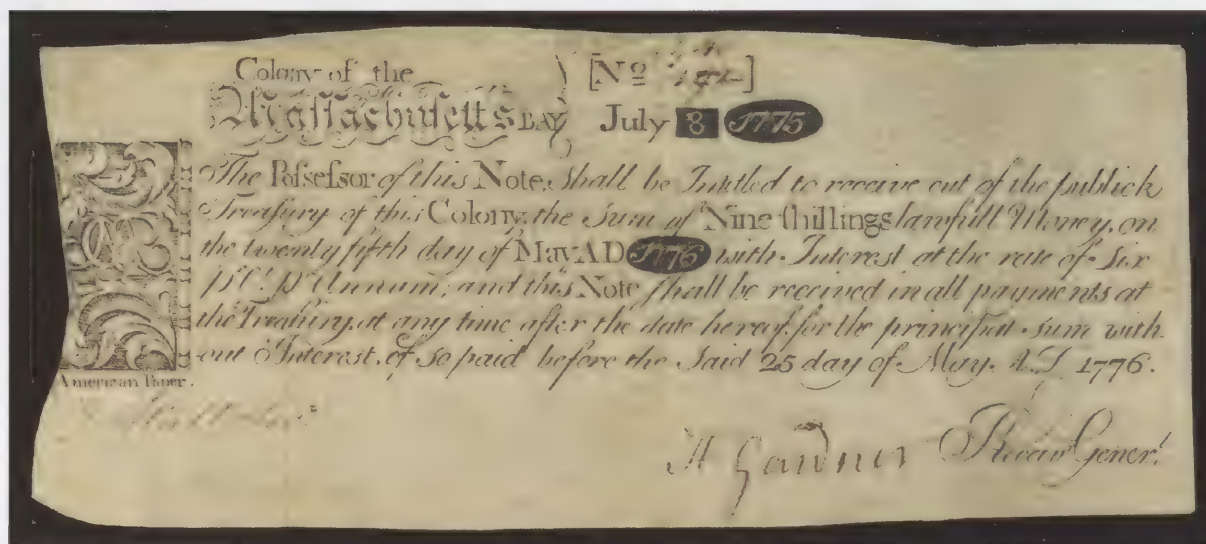 Colony of the
Massachusetts BAY
[No ]
July 8 1775
The Possessor of this Note, shall be Intitled to receive out of the publick
Treasury of this Colony, the Sum of Nine shillings lawfull Money, on
the twenty fifth day of May AD 1776 with Interest at the rate of Six
Pr. Ct. Pr. Annum, and this Note shall be received in all payments at
the Treasury, at any time after the date hereof, for the principal Sum with
out Interest, if so paid before the Said 25 day of May. A.D 1776.
American Paper.
H Gardner Receivr Generl.